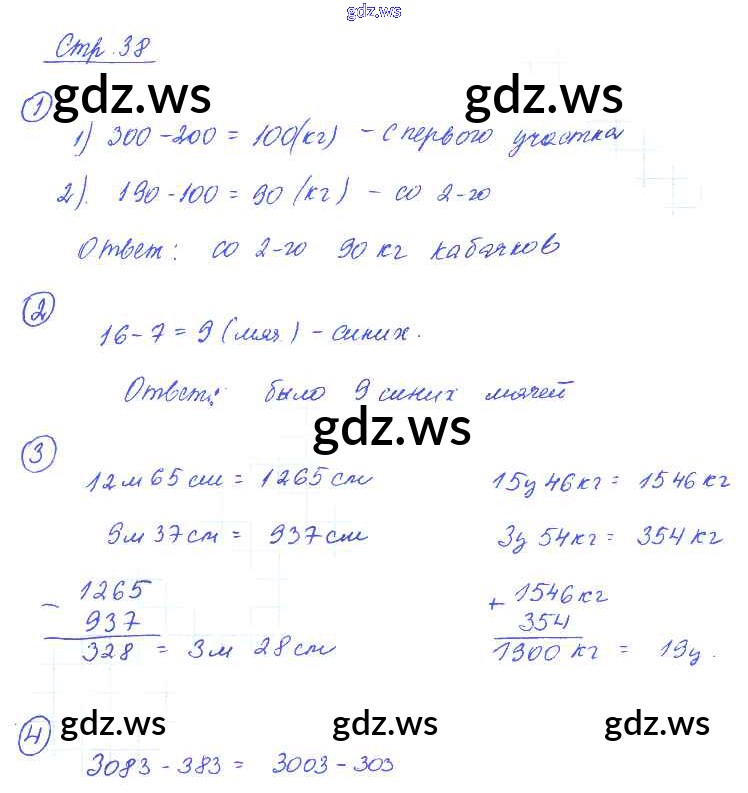 gdz.ws
Стр. 38
gdz.ws gdz.ws
1
1) 300 - 200 = 100 (кг) - с первого участка
2). 190 - 100 = 90 (кг) - со 2-го
Ответ: со 2-го 90 кг кабачков
2
16 - 7 = 9 (мяч) - синих.
Ответ: было 9 синих мячей
gdz.ws
3
12 м 65 см = 1265 см 15ц 46 кг = 1546 кг
9м 37 см = 937 см 3ц 54 кг = 354 кг
- 1265 + 1546 кг
937 354
328 = 3м 28 см 1900 кг = 19ц.
gdz.ws gdz.ws gdz.ws
4
3083 - 383 = 3003 - 303